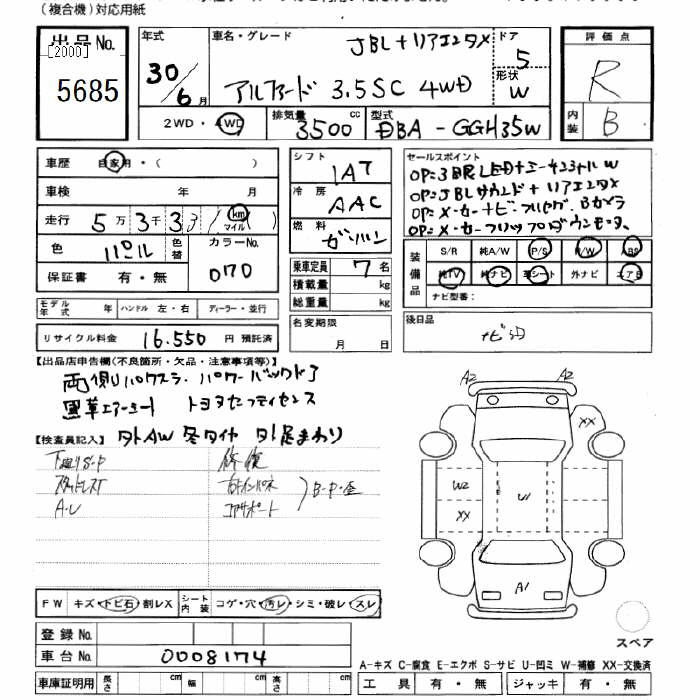 (複合機)対応用紙
出品No.
[2000]
5685
年式
30/6月
車名・グレード
JBL+リアエンタX
アルファード 3.5SC 4WD
ドア
5
形状
W
評価点
R
内装
B
2WD・4WD
排気量
3500cc
型式
DBA-GGH35W
車歴 自家用・( )
車検 年 月
走行 5万3千33
km
マイル
色 パール
色替
カラーNo.
070
保証書 有・無
モデル年式 年 ハンドル 左・右 ディーラー・並行
リサイクル料金 16.550 円 預託済
シフト
IAT
冷房
AAC
燃料
ガソリン
乗車定員 7 名
積載量 kg
総重量 kg
名変期限
月 日
セールスポイント
OP=3眼LED
OP=JBLサウンド+リアエンタX
装備品
S/R 純A/W P/S R/W ABS
純TV 純ナビ 革シート 外ナビ エアB
ナビ型番:
後日品
【出品店申告欄(不良箇所・欠品・注意事項等)】
両側パワスラ パワーバックドア
黒革エアーシート トヨタセーフティセンス
【検査員記入】 外AW 冬タイヤ 外足まわり
スタッドレスT
A.U
修復
右インパネ
コアサポート
B・P・歪
A2 A2
XX
W2
XX
U1
A1
FW キズ・トビ石・割レX シート内装 コゲ・穴・汚レ・シミ・破レ・スレ
登録No.
車台No. 0008174
車庫証明用 長さ cm 幅 cm 高さ cm
スペア
A-キズ C-腐食 E-エクボ S-サビ U-凹ミ W-補修 XX-交換済
工具 有・無 ジャッキ 有・無